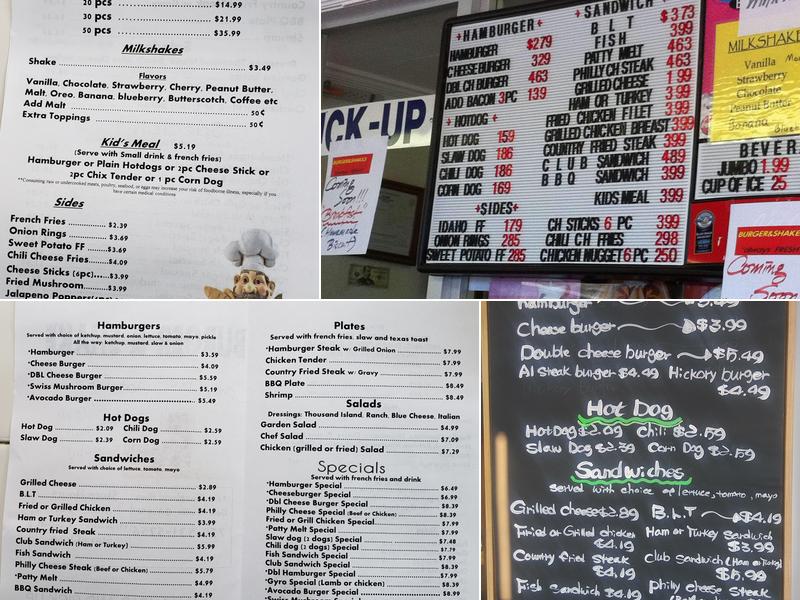 20 pcs ........ $14.99
30 pcs ........ $21.99
50 pcs ........ $35.99
Milkshakes
Shake ........ $3.49
Flavors
Vanilla, Chocolate, Strawberry, Cherry, Peanut Butter,
Malt, Oreo, Banana, blueberry, Butterscotch, Coffee etc
Add Malt ........ 50¢
Extra Toppings ........ 50¢
Kid's Meal $5.19
(Serve with Small drink & french fries)
Hamburger or Plain Hotdogs or 2pc Cheese Stick or
2pc Chix Tender or 1 pc Corn Dog
**Consuming raw or undercooked meats, poultry, seafood, or eggs may increase your risk of foodborne illness, especially if you
have certain medical conditions
Sides
French Fries ........ $2.39
Onion Rings ........ $3.69
Sweet Potato FF ........ $3.69
Chili Cheese Fries ........ $4.09
Cheese Sticks (6pc) ........ $3.99
Fried Mushroom ........ $3.99
Jalapeno Poppers
ICK-UP
BURGER&SHAKE
Coming
Soon!!!
Breakfast
Homemade
Biscuit
HAMBURGER
HAMBURGER $279
CHEESE BURGER 329
DBL CH BURGER 463
ADD BACON 3PC 139
HOTDOG
HOT DOG 159
SLAW DOG 186
CHILI DOG 186
CORN DOG 169
SANDWICH
B L T $373
FISH 399
PATTY MELT 463
PHILLY CH STEAK 463
GRILLED CHEESE 199
HAM OR TURKEY 399
FRIED CHICKEN FILET 399
GRILLED CHICKEN BREAST 399
COUNTRY FRIED STEAK 399
CLUB SANDWICH 489
BBQ SANDWICH 399
KIDS MEAL 399
SIDES
IDAHO FF 179
ONION RINGS 285
SWEET POTATO FF 285
CH STICKS 6 PC 399
CHILI CH FRIES 298
CHICKEN NUGGET 6 PC 250
MILKSHAKE
Vanilla
Strawberry
Chocolate
Peanut Butter
Banana
BEVER
JUMBO 1.99
CUP OF ICE 25
BURGER&SHAKE
ALWAYS FRESH
Coming
Soon
Hamburgers
Served with choice of ketchup, mustard, onion, lettuce, tomato, mayo, pickle
All the way: ketchup, mustard, slaw & onion
*Hamburger ........ $3.59
*Cheese Burger ........ $4.09
*DBL Cheese Burger ........ $5.59
*Swiss Mushroom Burger ........ $5.19
*Avocado Burger ........ $5.49
Hot Dogs
Hot Dog ........ $2.09 Chili Dog ........ $2.59
Slaw Dog ........ $2.39 Corn Dog ........ $2.59
Sandwiches
Served with choice of lettuce, tomato, mayo
Grilled Cheese ........ $2.89
B.L.T ........ $4.19
Fried or Grilled Chicken ........ $4.19
Ham or Turkey Sandwich ........ $3.99
Country fried Steak ........ $4.19
Club Sandwich (Ham or Turkey) ........ $5.99
Fish Sandwich ........ $4.19
Philly Cheese Steak (Beef or Chicken) ........ $5.79
*Patty Melt ........ $4.99
BBQ Sandwich ........ $4.19
Plates
Served with french fries, slaw and texas toast
*Hamburger Steak w/ Grilled Onion ........ $7.99
Chicken Tender ........ $7.99
Country Fried Steak w/ Gravy ........ $7.99
BBQ Plate ........ $8.49
Shrimp ........ $8.49
Salads
Dressings: Thousand Island, Ranch, Blue Cheese, Italian
Garden Salad ........ $4.99
Chef Salad ........ $7.09
Chicken (grilled or fried) Salad ........ $7.29
Specials
Served with french fries and drink
*Hamburger Special ........ $6.49
*Cheeseburger Special ........ $6.99
*Dbl Cheese Burger Special ........ $8.39
Philly Cheese Special (Beef or Chicken) ........ $8.39
Fried or Grill Chicken Special ........ $7.99
*Patty Melt Special ........ $7.99
Slaw dog (2 dogs) Special ........ $7.48
Chili dog (2 dogs) Special ........ $7.79
Fish Sandwich Special ........ $7.99
Club Sandwich Special ........ $8.39
*Dbl Hamburger Special ........ $7.99
*Gyro Special (Lamb or chicken) ........ $8.39
*Avocado Burger Special ........ $8.99
*Swiss Mushroom Special
Hamburger $3.49
Cheese burger $3.99
Double cheese burger $5.49
A1 Steak burger $4.49 Hickory burger
$4.49
Hot Dog
Hot Dog $2.09 Chili $2.59
Slaw Dog $2.39 Corn Dog $2.59
Sandwiches
served with choice of lettuce, tomato, mayo
Grilled cheese $2.89 B.L.T $4.19
Fried or Grilled chicken Ham or Turkey Sandwich
$4.19 $3.99
Country fried Steak club sandwich (Ham or Turkey)
$4.19 $5.99
Fish sandwich $4.19 Philly cheese Steak